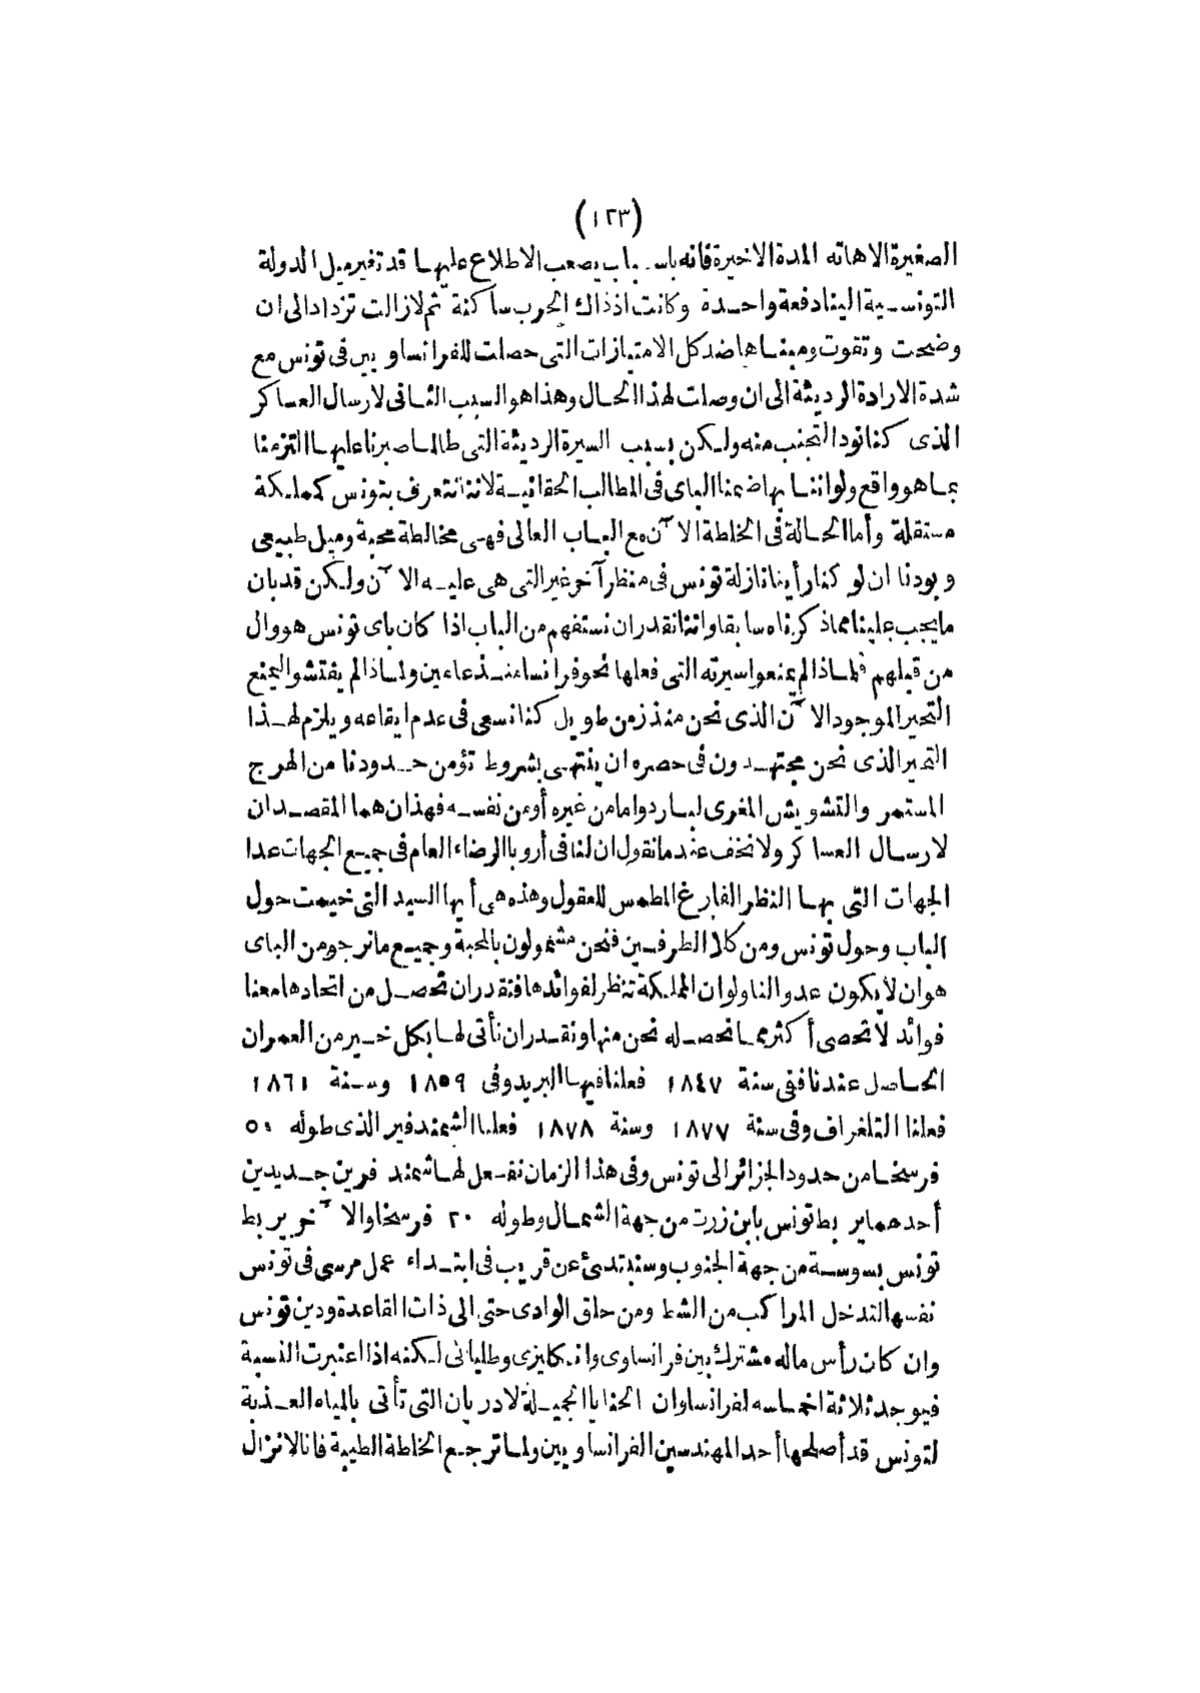 (١٢٣)
الصغيرة الا هاته المدة الاخيرة فانه باسباب يصعب الاطلاع عليها قد تغير ميل الدولة
التونسية الينا دفعة واحدة وكانت اذ ذاك الحرب ساكنة ثم لازالت تزداد الى ان
وضحت وتقوت ومبناها ضد كل الامتيازات التى حصلت للفرانساويين فى تونس مع
شدة الارادة الرديئة الى ان وصلت لهذا الحال وهذا هو السبب الثانى لارسال العساكر
الذى كنا نود التجنب منه ولكن بسبب السيرة الرديئة التى طالما صبرنا عليها التزمنا
بما هو واقع ولو اننا بها ضمنا الباى فى المطالب الحقانية لاننا نتعرف بتونس كملكة
مستقلة وأما الحالة فى الخلطة الآن مع الباب العالى فهى مخالطة محبة وميل طبيعى
وبودنا ان لو كنا رأينا نازلة تونس فى منظر آخر غير التى هى عليه الآن ولكن قد بان
ما يجب علينا مما ذكرناه سابقا واننا نقدر ان نستفهم من الباب اذا كان باى تونس هو وال
من قبلهم فلماذا لم يمنعوا سيرته التى فعلها نحو فرانسا منذ عامين ولماذا لم يفتشوا ليمنع
التحير الموجود الآن الذى نحن منذ زمن طويل كنا نسعى فى عدم ايقاعه ويلزم لهذا
التحير الذى نحن مجتهدون فى حصره ان ينتهى بشروط تؤمن حدودنا من الهرج
المستمر والتشويش المغرى لباردوا ما من غيره أو من نفسه فهذان هما المقصدان
لارسال العساكر ولا نخف عند ما نقول ان لنا فى أروبا الرضاء العام فى جميع الجهات عدا
الجهات التى بها النظر الفارغ المطمس للعقول وهذه هى أيها السيد التى خيمت حول
الباب وحول تونس ومن كلا الطرفين فنحن مشمولون بالمحبة وجميع ما نرجو من الباى
هو ان لا يكون عدوا لنا ولو ان المملكة تنظر لفوائدها فتقدر ان تحصل من اتحادها معنا
فوائد لا تحصى أكثر مما نحصله نحن منها ونقدر ان نأتى لها بكل خير من العمران
الحاصل عندنا ففى سنة ١٨٤٧ فعلنا فيها البريد وفى ١٨٥٩ وسنة ١٨٦١
فعلنا التلغراف وفى سنة ١٨٧٧ وسنة ١٨٧٨ فعلنا الشمندفير الذى طوله ٥٠
فرسخا من حدود الجزائر الى تونس وفى هذا الزمان نفعل لها شمند فرين جديدين
أحدهما يربط تونس بابن زرت من جهة الشمال وطوله ٢٠ فرسخا والآخر يربط
تونس بسوسة من جهة الجنوب وسنبتدئ عن قريب فى ابتداء عمل مرسى فى تونس
نفسها لتدخل المراكب من الشط ومن حلق الوادى حتى الى ذات القاعدة ودين تونس
وان كان رأس ماله مشترك بين فرانساوى وانكليزى وطليانى لكنه اذا اعتبرت النسبة
فيوجد ثلاثة اخماسه لفرانسا وان الحنايا الجميلة لادريان التى تأتى بالمياه العذبة
لتونس قد أصلحها أحد المهندسين الفرانساويين ولما ترجع الخلطة الطيبة فانا لا نزال